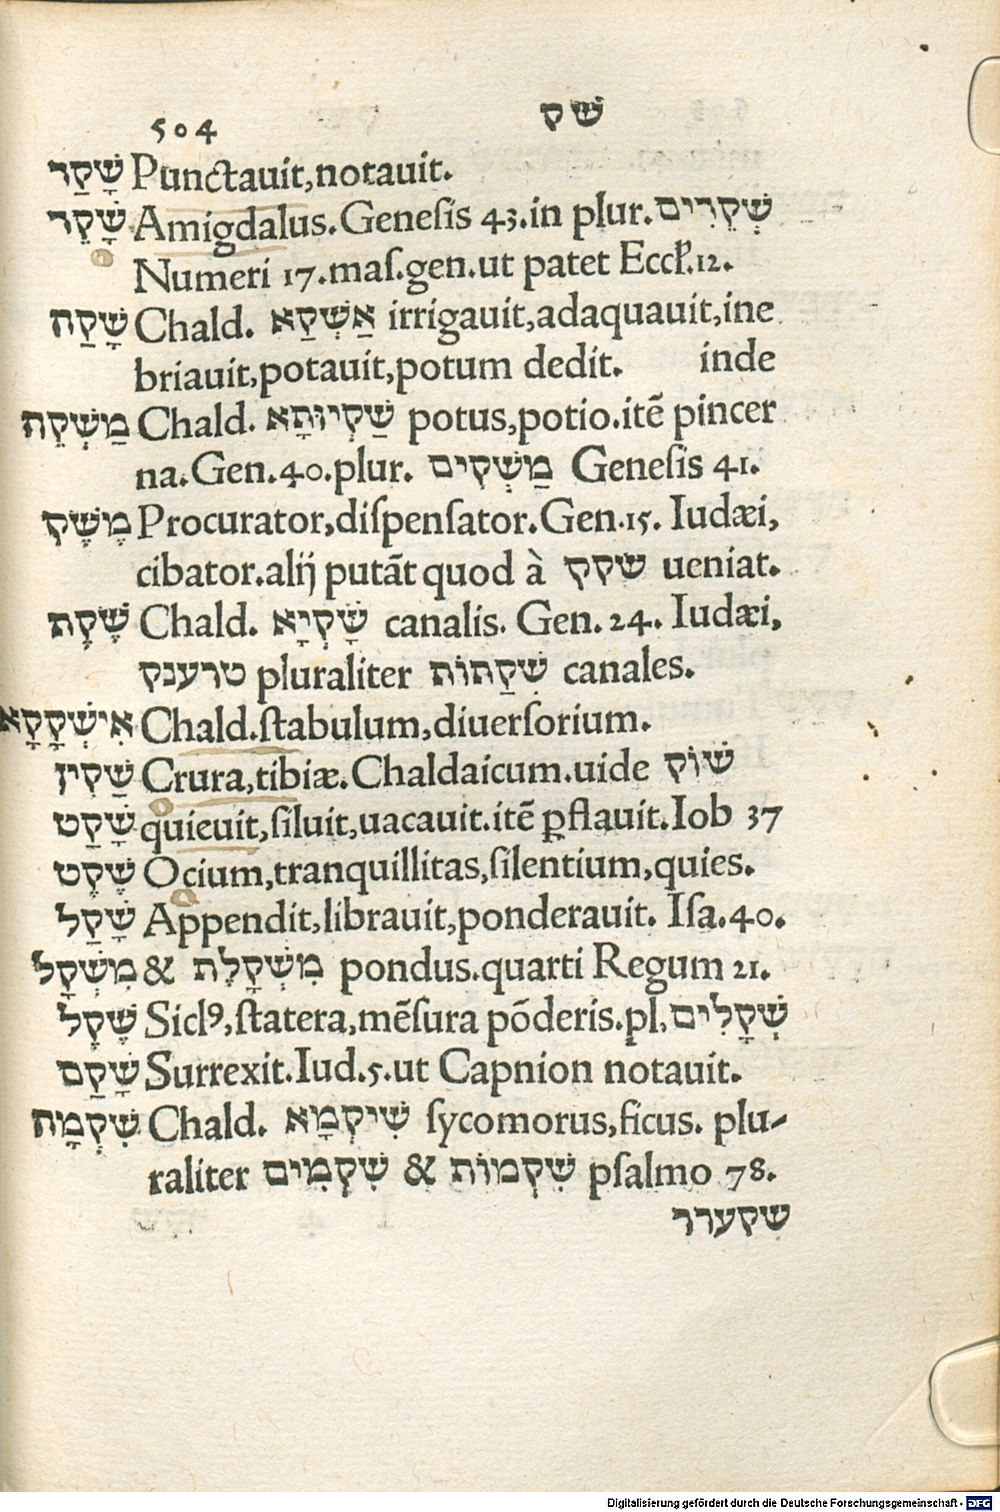 504 שק
שָׁקַר Punctauit,notauit.
שָׁקֵר Amigdalus.Geneſis 43.in plur.שְׁקֵרִים
Numeri 17.maſ.gen.ut patet Eccl̕.12.
שָׁקַח Chald. אַשְׁקַא irrigauit,adaquauit,ine
briauit,potauit,potum dedit. inde
מַשְׁקֶה Chald. שַׁקְיוּתָא potus,potio.itē pincer
na.Gen.40.plur. מַשְׁקִים Geneſis 41.
מֶשֶׁק Procurator,diſpenſator.Gen.15. Iudæi,
cibator.alij putāt quod à שקק ueniat.
שֶׁקֶת Chald. שָׁקְיָא canalis. Gen. 24. Iudæi,
טרענק pluraliter שִׁקַתוֹת canales.
אִישְׁקָקָא Chald.ſtabulum,diuerſorium.
שַׁקִין Crura,tibiæ.Chaldaicum.uide שׁוֹק
שָׁקַט quieuit,ſiluit,uacauit.itē ꝑflauit.Iob 37
שֶׁקֶט Ocium,tranquillitas,ſilentium,quies.
שָׁקַל Appendit,librauit,ponderauit. Iſa.40.
מִשְׁקָל & מִשְׁקָלֶת pondus.quarti Regum 21.
שֶׁקֶל Siclꝰ,ſtatera,mēſura pōderis.pl.שְׁקָלִים
שָׁקַם Surrexit.Iud.5.ut Capnion notauit.
שִׁקְמָה Chald. שִׁיקְמָא ſycomorus,ficus. plu-
raliter שִׁקְמִים & שִׁקְמוֹת pſalmo 78.
שקערר
Digitalisierung gefördert durch die Deutsche Forschungsgemeinschaft - DFG